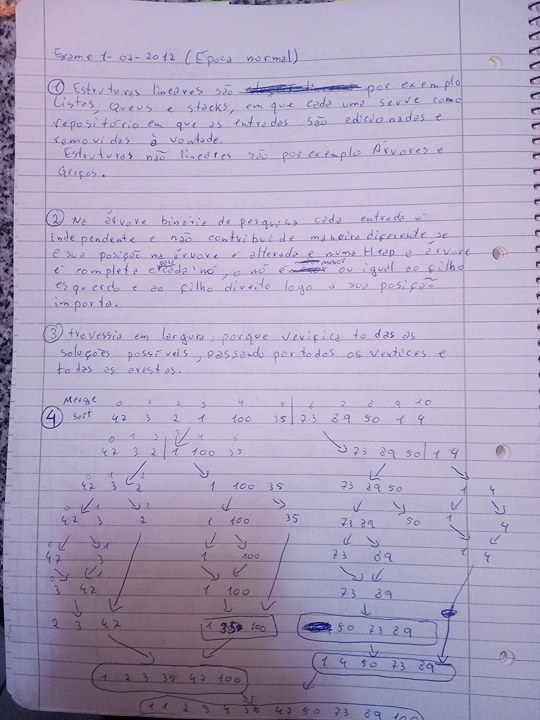 Exame 1-02-2012 (Época normal)
① Estruturas lineares são por exemplo
Listas, Queus e stacks, em que cada uma serve como
repositório em que as entradas são adicionadas e
removidas à vontade.
Estruturas não lineares são por exemplo Árvores e
Grafos.
② Na árvore binária de pesquisa cada entrada é
independente e não contribui de maneira diferente se
a sua posição na árvore é alterada e numa Heap a árvore
é completa e para cada nó, o nó é ou igual ao filho
esquerdo e ao filho direito logo a sua posição
importa.
③ travessia em largura, porque verifica todas as
soluções possíveis, passando por todos os vertices e
todas as arestas.
Merge 0 1 2 3 4 5 6 7 8 9 10
④ sort 47 3 2 1 100 35 73 89 50 1 4
0 1 2 3 4
47 3 2 1 100 35 73 89 50 1 4
47 3 2 1 100 35 73 89 50 1 4
47 3 2 1 100 35 73 89 50 1 4
47 3 1 100 73 89 1 4
3 47 1 100 73 89
2 3 47 1 35 100 50 73 89
1 2 3 35 47 100 1 4 50 73 89
1 1 2 3 4 35 47 50 73 89 100